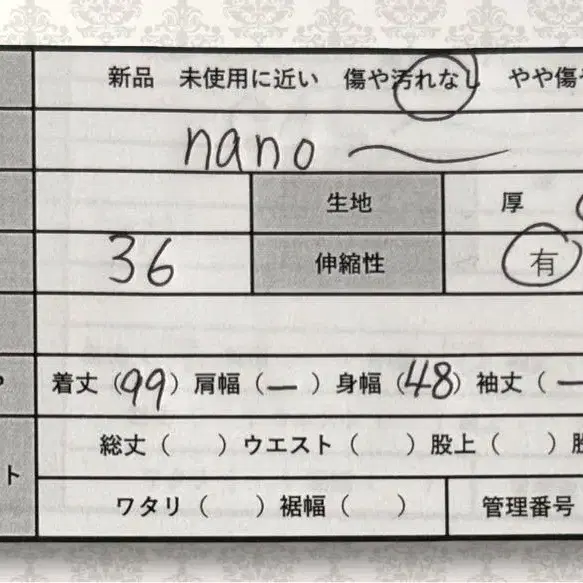 新品 未使用に近い 傷や汚れなし やや傷
nano
生地 厚
36 伸縮性 有
着丈（99）肩幅（ー）身幅（48）袖丈（ー
総丈（　）ウエスト（　）股上（　）股
ト
ワタリ（　）裾幅（　） 管理番号